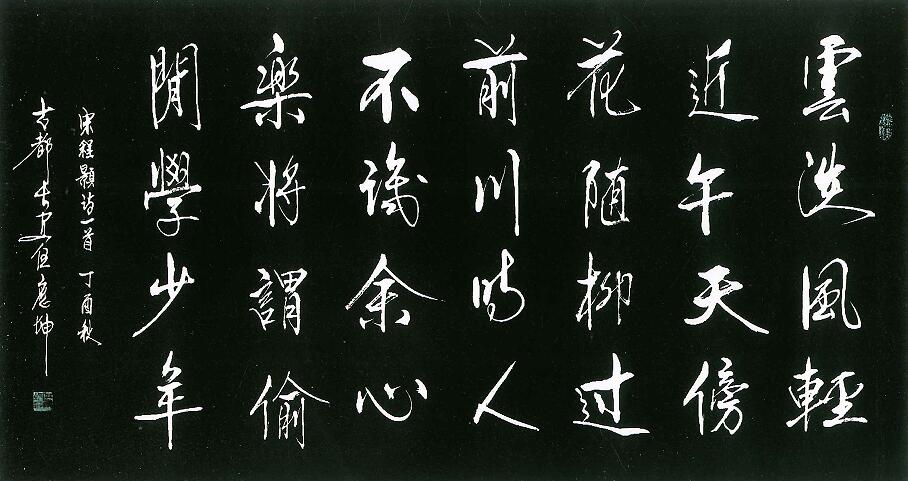 雲淡風輕
近午天傍
花随柳过
前川時人
不識余心
樂將謂偷
閒學少年
宋程顥诗一首 丁酉秋
古都长安但應坤